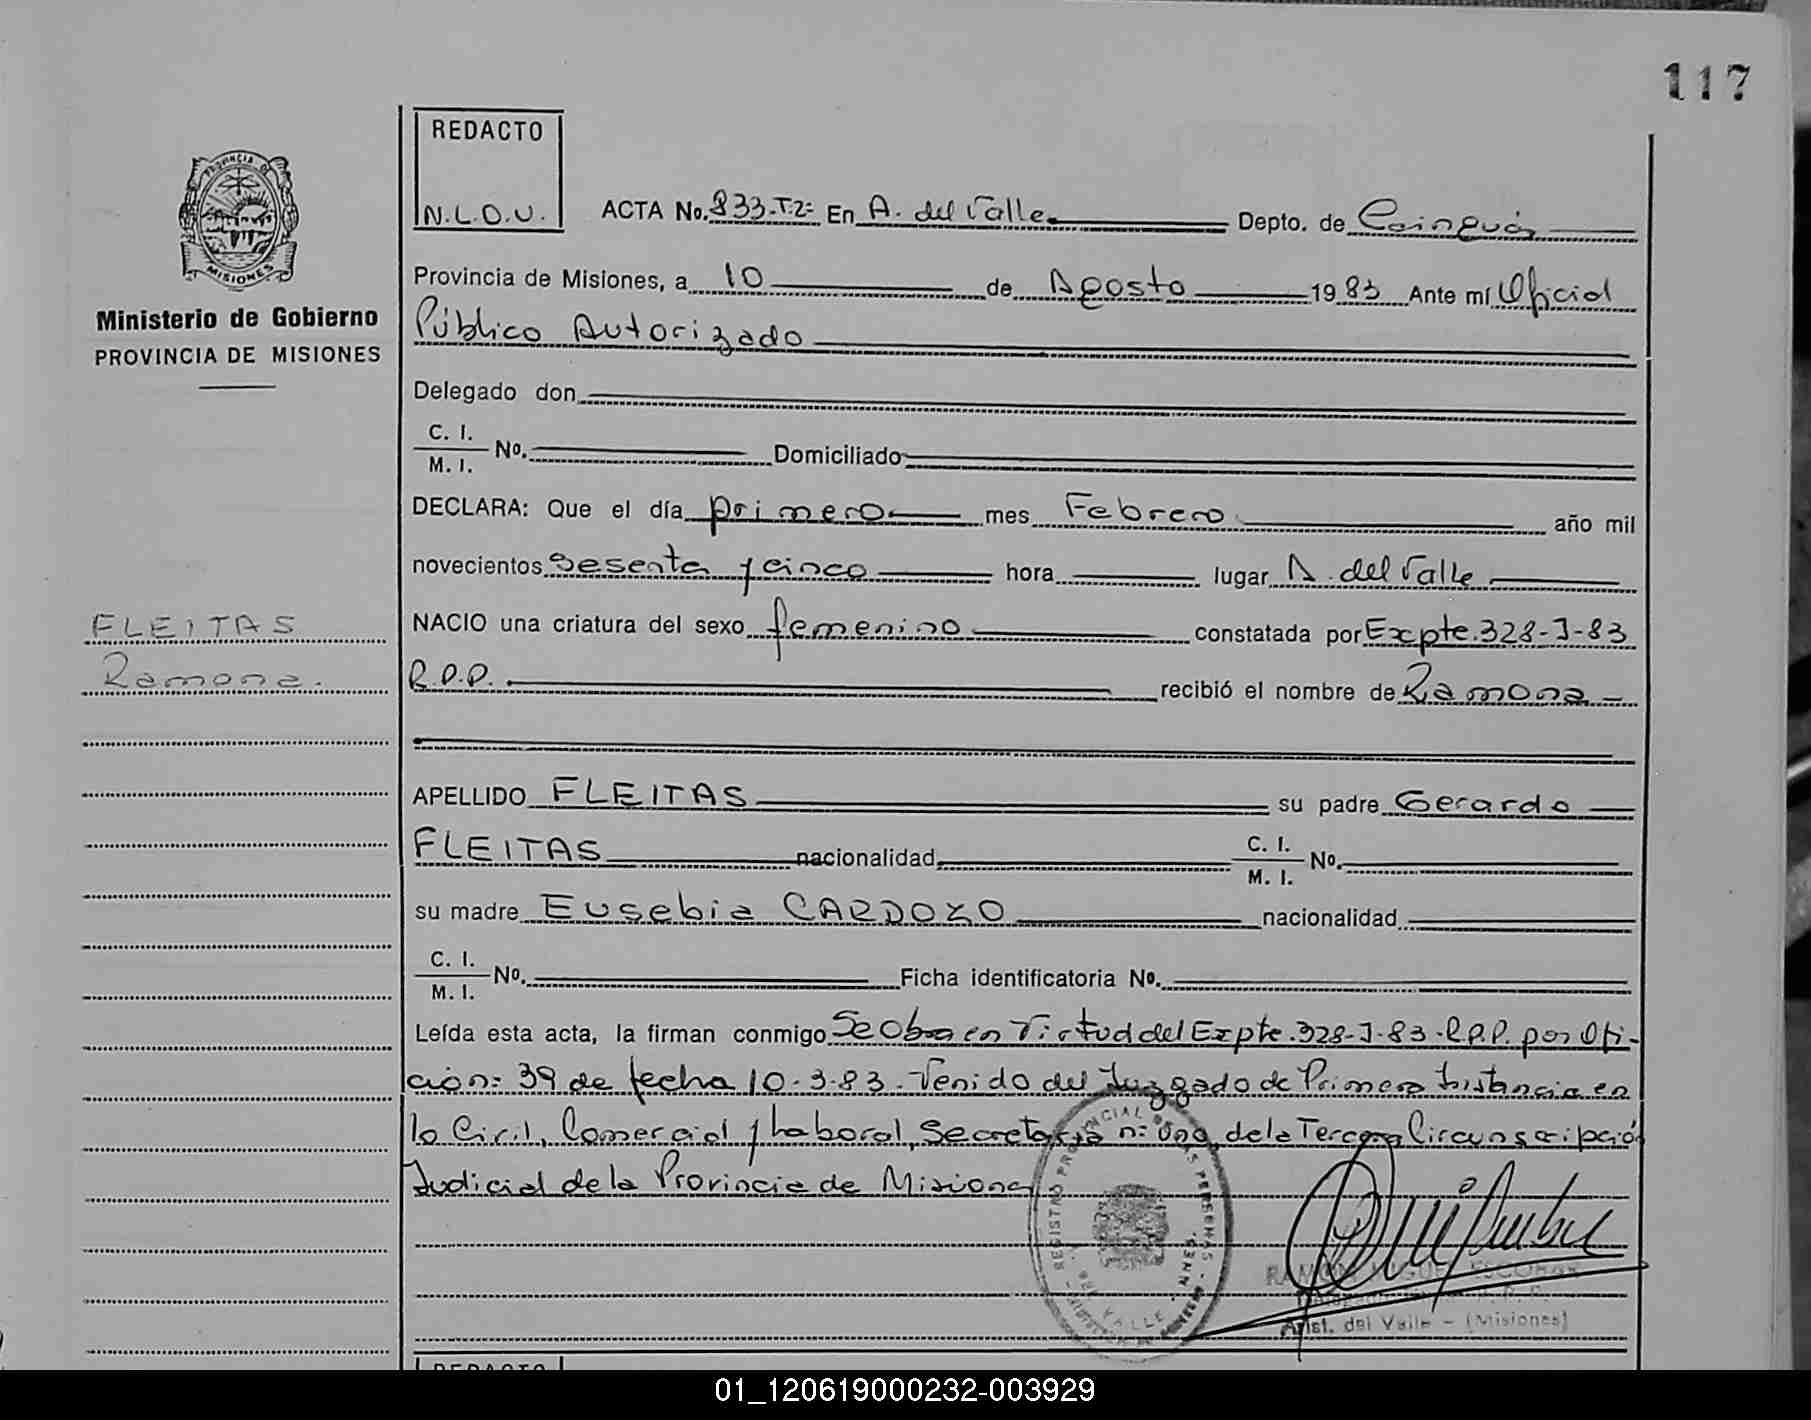 117
REDACTO
N.L.O.U.
PROVINCIA DE
MISIONES
Ministerio de Gobierno
PROVINCIA DE MISIONES
ACTA No. 833-T.2= En A. del Valle Depto. de Cainguás
Provincia de Misiones, a 10 de Agosto 1983 Ante mí Oficial
Público Autorizado
Delegado don
C. I.
M. I. No. Domiciliado
DECLARA: Que el día primero mes Febrero año mil
novecientos sesenta y cinco hora lugar A. del Valle
FLEITAS
Ramona.
NACIO una criatura del sexo femenino constatada por Expte. 328-J-83
R.P.P. recibió el nombre de Ramona
APELLIDO FLEITAS su padre Gerardo
FLEITAS nacionalidad C. I.
M. I. No.
su madre Eusebia CARDOZO nacionalidad
C. I.
M. I. No. Ficha identificatoria No.
Leída esta acta, la firman conmigo Se Obra en Virtud del Expte. 328-J-83-R.P.P. por Ofi-
cio n: 39 de fecha 10-3-83. Venido del Juzgado de Primera Instancia en
lo Civil, Comercial y Laboral, Secretaria n: Uno, de la Tercera Circunscripción
Judicial de la Provincia de Misiones
REGISTRO PROVINCIAL DE LAS PERSONAS
DEL VALLE
RAMON MIGUEL ESCOBAR
Arist. del Valle - (Misiones)
REDACTO
01_120619000232-003929